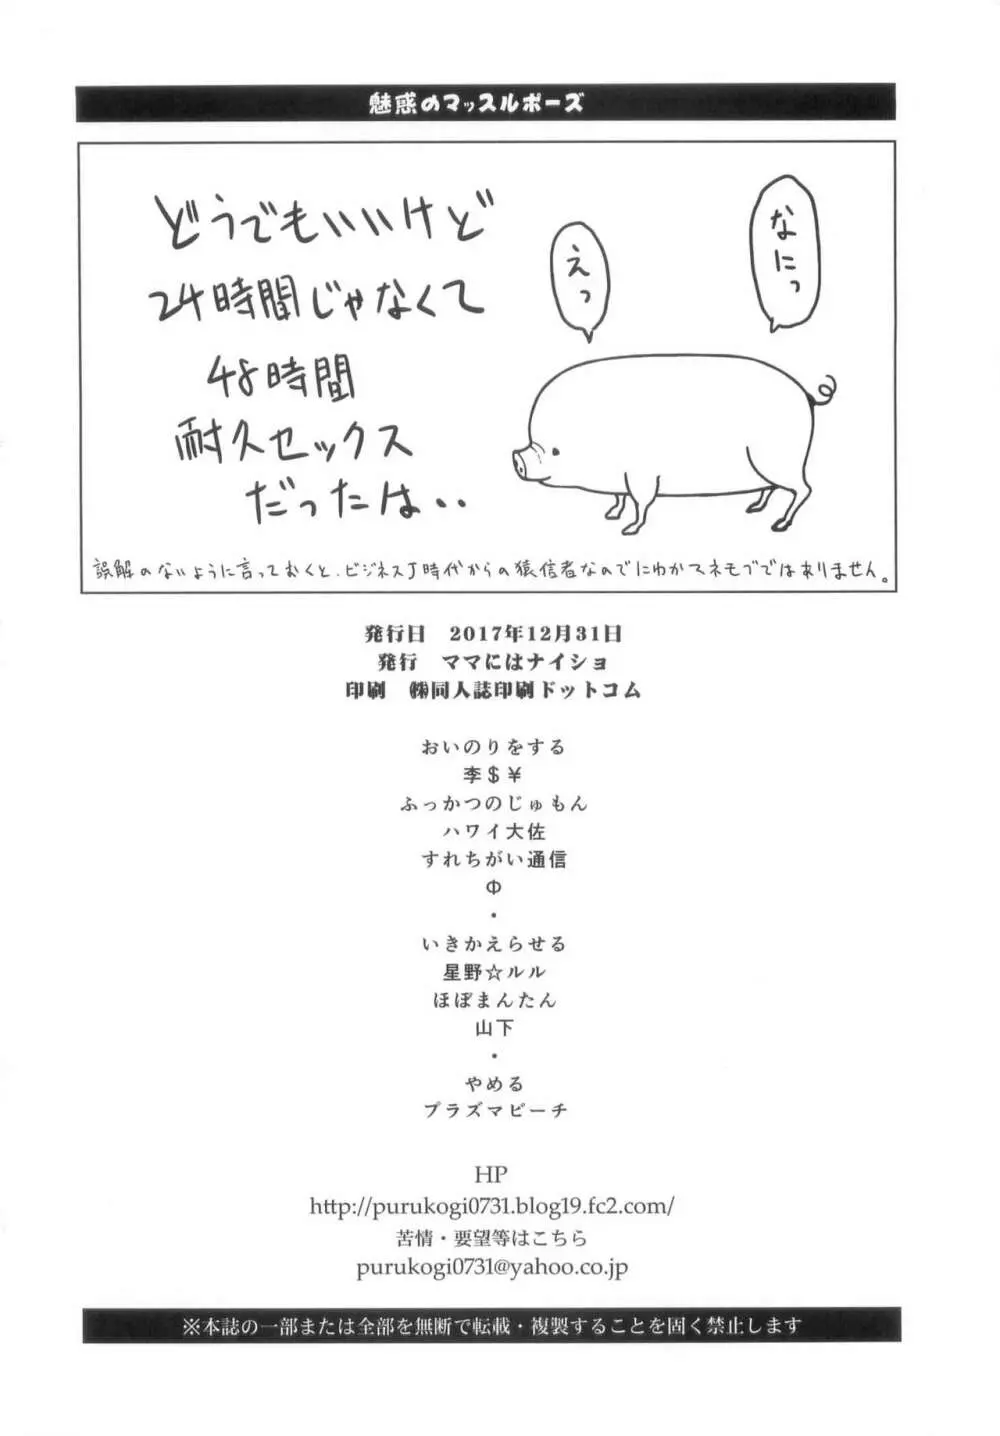 魅惑のマッスルポーズ
どうでもいいけど
24時間じゃなくて
48時間
耐久セックス
だったは・・
なにっ
えっ
誤解のないように言っておくと、ビジネスJ時代からの猿信者なのでにわかスネモブではありません。
発行日 2017年12月31日
発行 ママにはナイショ
印刷 ㈱同人誌印刷ドットコム
おいのりをする
李＄￥
ふっかつのじゅもん
ハワイ大佐
すれちがい通信
Φ
・
いきかえらせる
星野☆ルル
ほぼまんたん
山下
・
やめる
プラズマピーチ
HP
http://purukogi0731.blog19.fc2.com/
苦情・要望等はこちら
purukogi0731@yahoo.co.jp
※本誌の一部または全部を無断で転載・複製することを固く禁止します